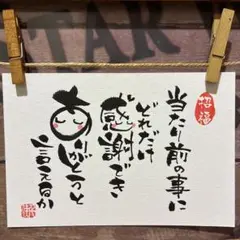 招福
当たり前の事に
どれだけ
感謝でき
ありがとうと
言えるか